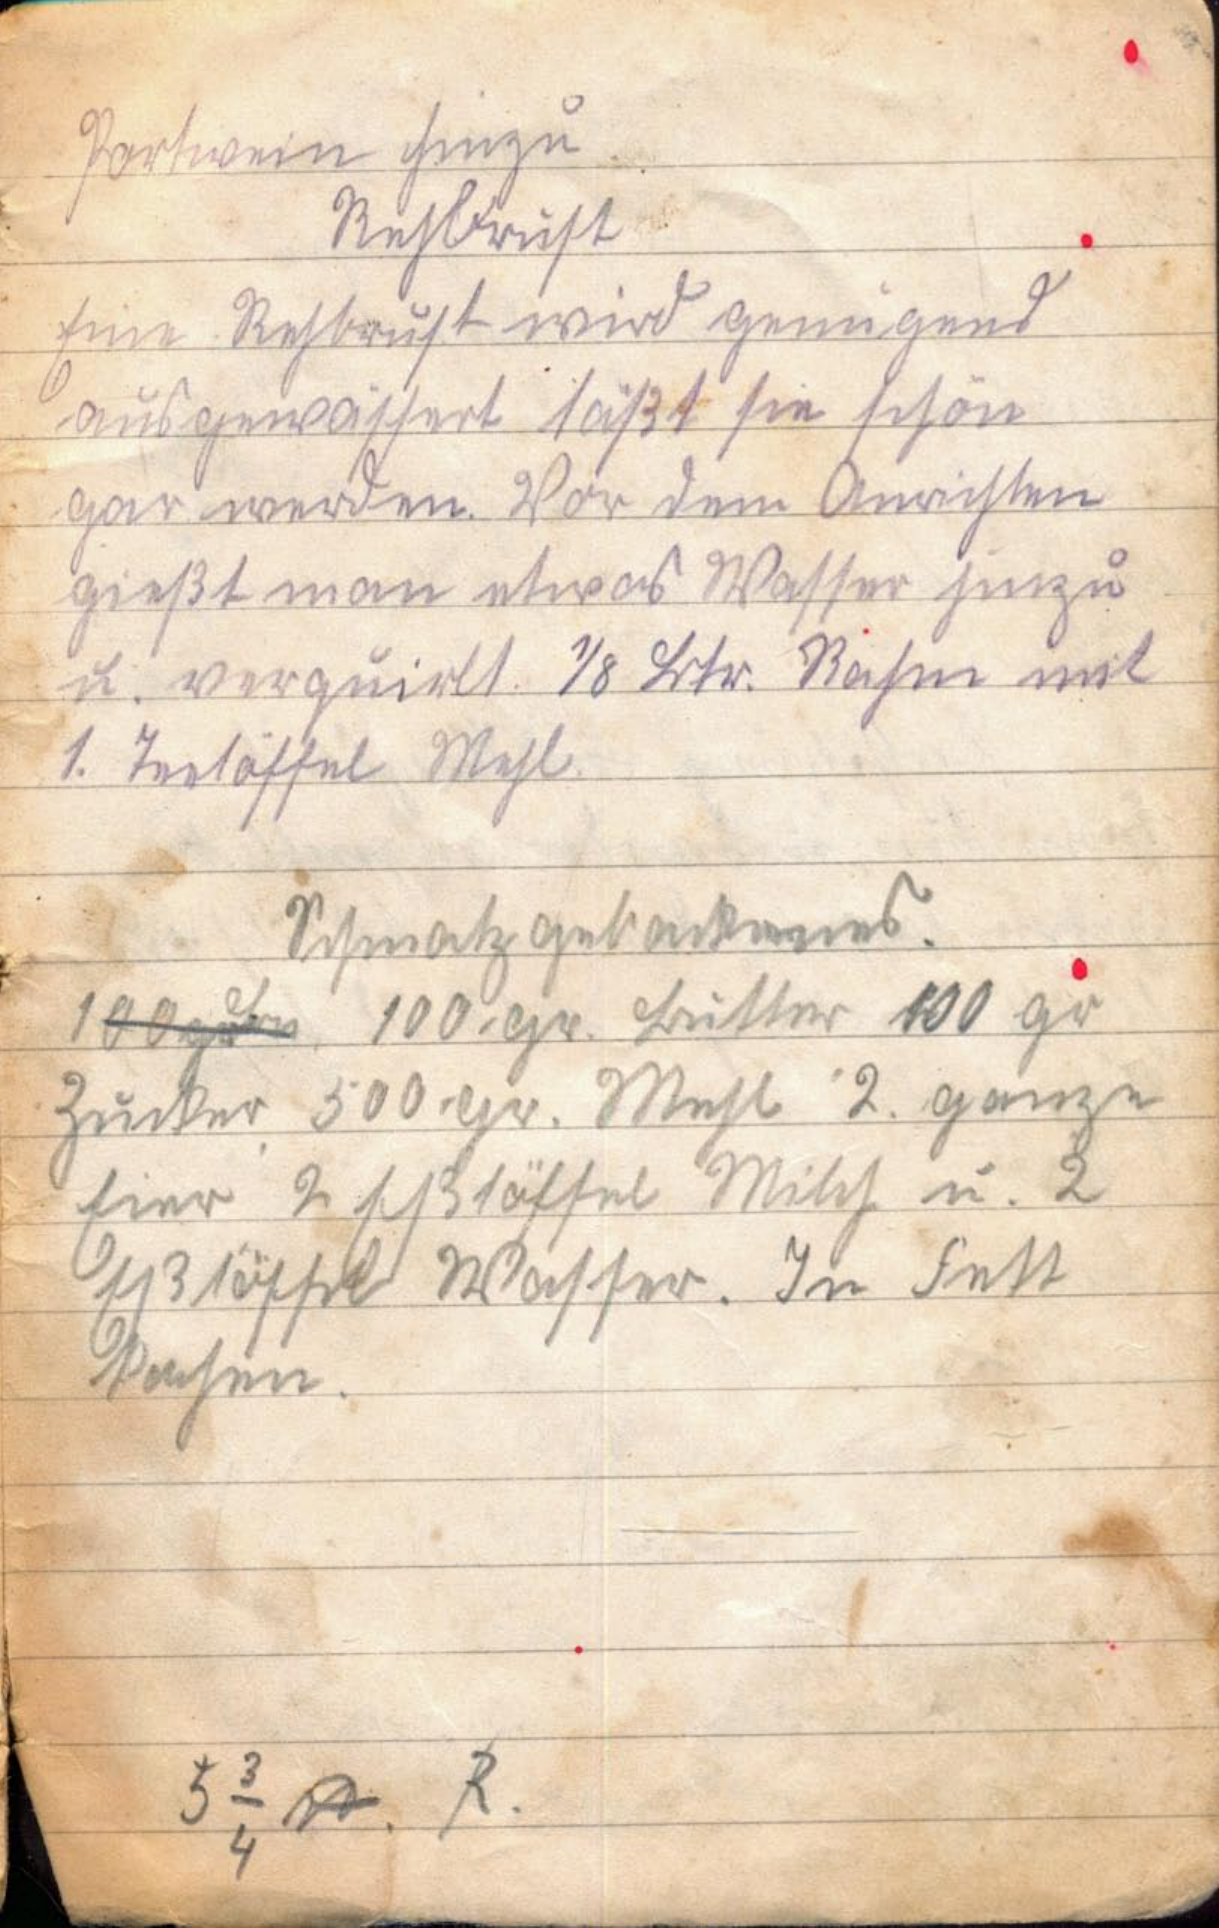 Portwein hinzu
Rehbrust
Eine Rehbrust wird genügend
ausgewässert läßt sie schön
gar werden. Vor dem Anrichten
gießt man etwas Wasser hinzu
u. verquirlt 1/8 Ltr. Rahm mit
1. Teelöffel Mehl.
Schmalzgebackenes.
100 gr. Butter 100 gr
Zucker 500 gr. Mehl 2. ganze
Eier 2 Eßlöffel Milch u. 2
Eßlöffel Wasser. In Fett
backen.
5 3/4 R.